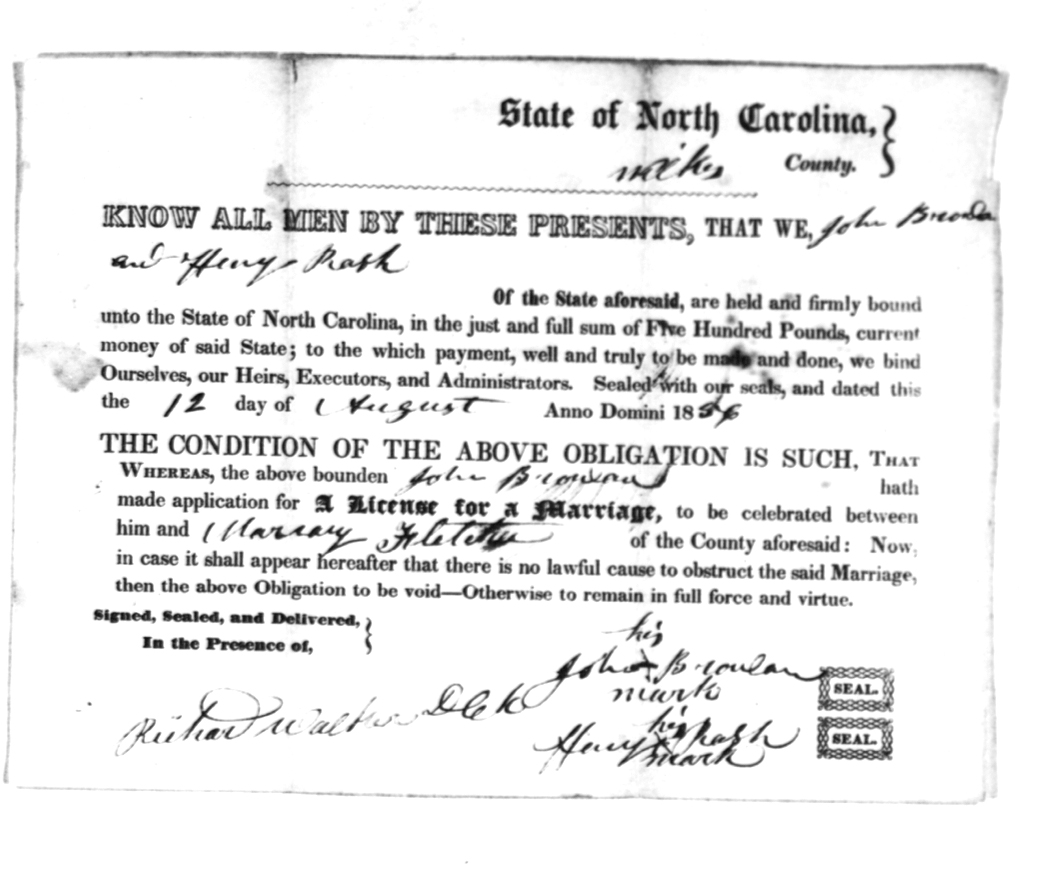 State of North Carolina,
Wilkes County.
KNOW ALL MEN BY THESE PRESENTS, THAT WE, John
and Henry Rash
Of the State aforesaid, are held and firmly bound
unto the State of North Carolina, in the just and full sum of Five Hundred Pounds, current
money of said State; to the which payment, well and truly to be made and done, we bind
Ourselves, our Heirs, Executors, and Administrators. Sealed with our seals, and dated this
the 12 day of August Anno Domini 1836
THE CONDITION OF THE ABOVE OBLIGATION IS SUCH, THAT
WHEREAS, the above bounden John hath
made application for A License for a Marriage, to be celebrated between
him and Fletcher of the County aforesaid: Now,
in case it shall appear hereafter that there is no lawful cause to obstruct the said Marriage,
then the above Obligation to be void—Otherwise to remain in full force and virtue.
Signed, Sealed, and Delivered,
In the Presence of,
his
John X SEAL.
mark
his
Henry X Rash SEAL.
mark
Richard Walker